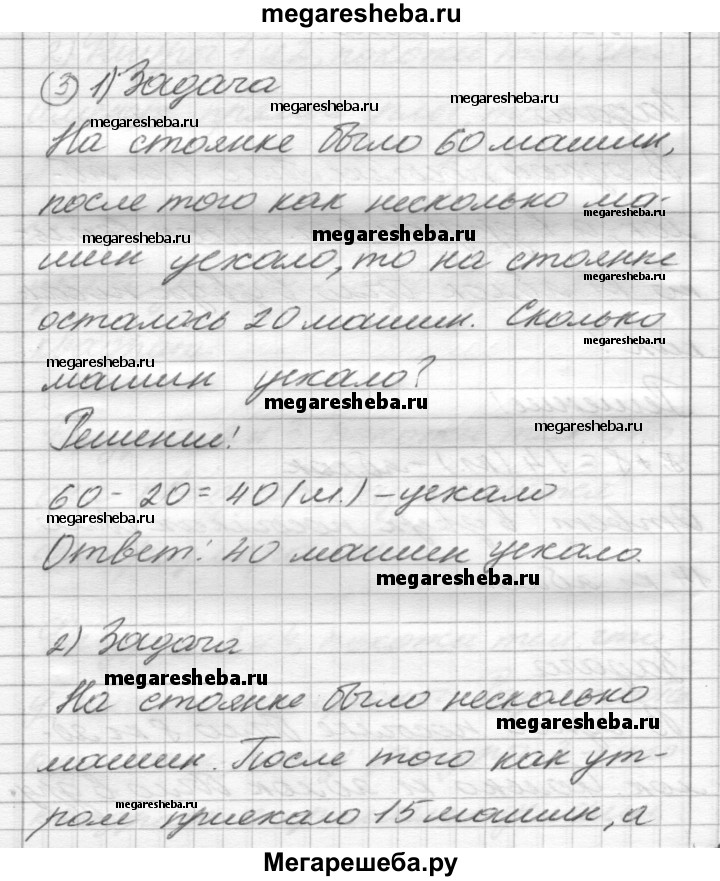 megaresheba.ru
③ 1) Задача
megaresheba.ru
megaresheba.ru
megaresheba.ru
На стоянке было 60 машин,
после того как несколько ма-
megaresheba.ru
megaresheba.ru
megaresheba.ru
шин уехало, то на стоянке
megaresheba.ru
осталось 20 машин. Сколько
megaresheba.ru
megaresheba.ru
машин уехало?
megaresheba.ru
Решение:
megaresheba.ru
60 - 20 = 40 (м.) - уехало
megaresheba.ru
Ответ: 40 машин уехало.
megaresheba.ru
2) Задача
megaresheba.ru
На стоянке было несколько
megaresheba.ru
машин. После того как ут-
megaresheba.ru
ром приехало 15 машин, а
Мегарешеба.ру